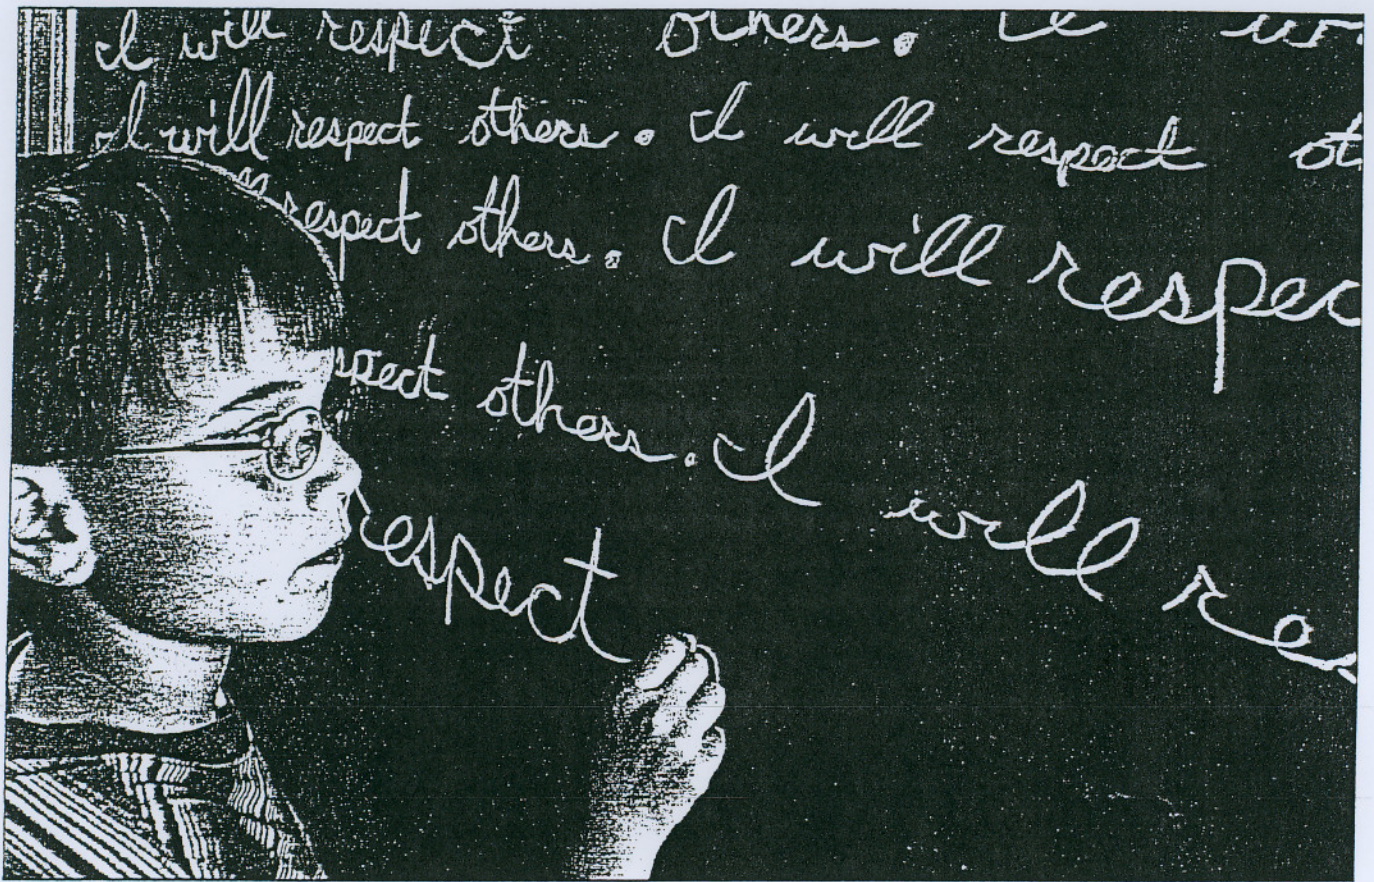 I will respect others. I w
I will respect others. I will respect ot
respect others. I will respec
spect others. I will res
respect